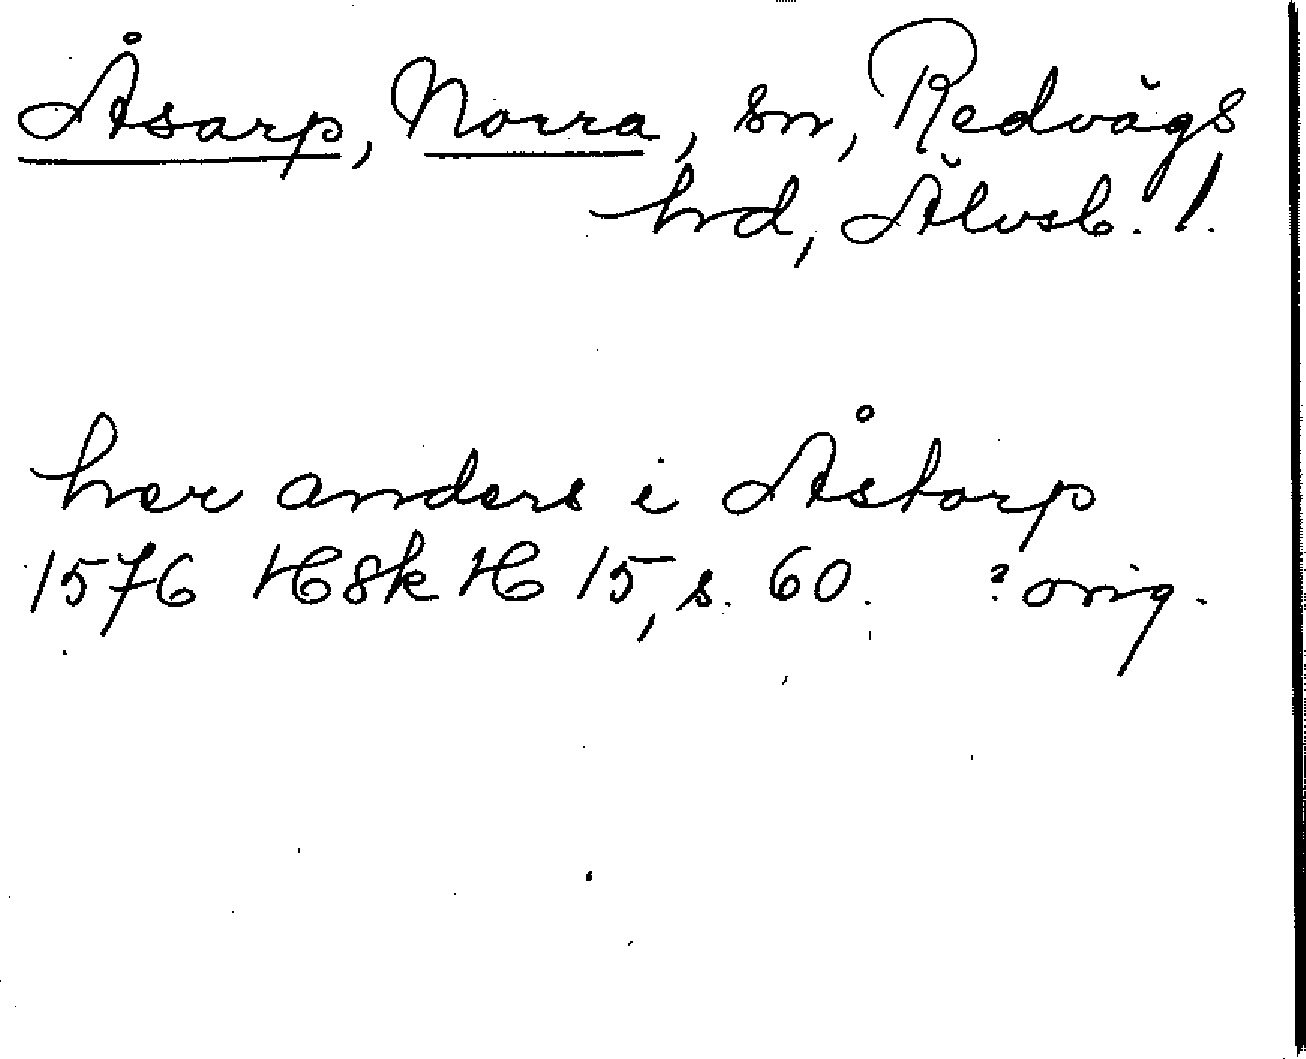 Åsarp, Norra, sn, Redvägs
hrd, Älvsb. l.
her anders i Åstorp
1576 HSkH 15, s. 60. ? orig.